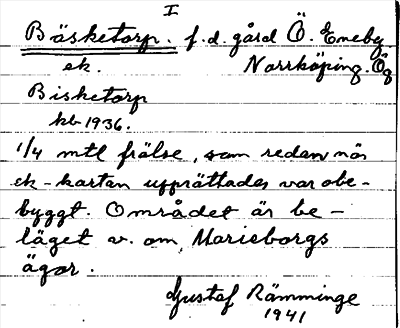 I
Bäsketorp. f.d. gård Ö. Eneby
ek. Norrköping. Ög
Bisketorp
hb 1936.
1/4 mtl frälse, som redan när
ek-kartan upprättades var obe-
byggt. Området är be-
läget v. om Marieborgs
ägor.
Gustaf Rämminge
1941